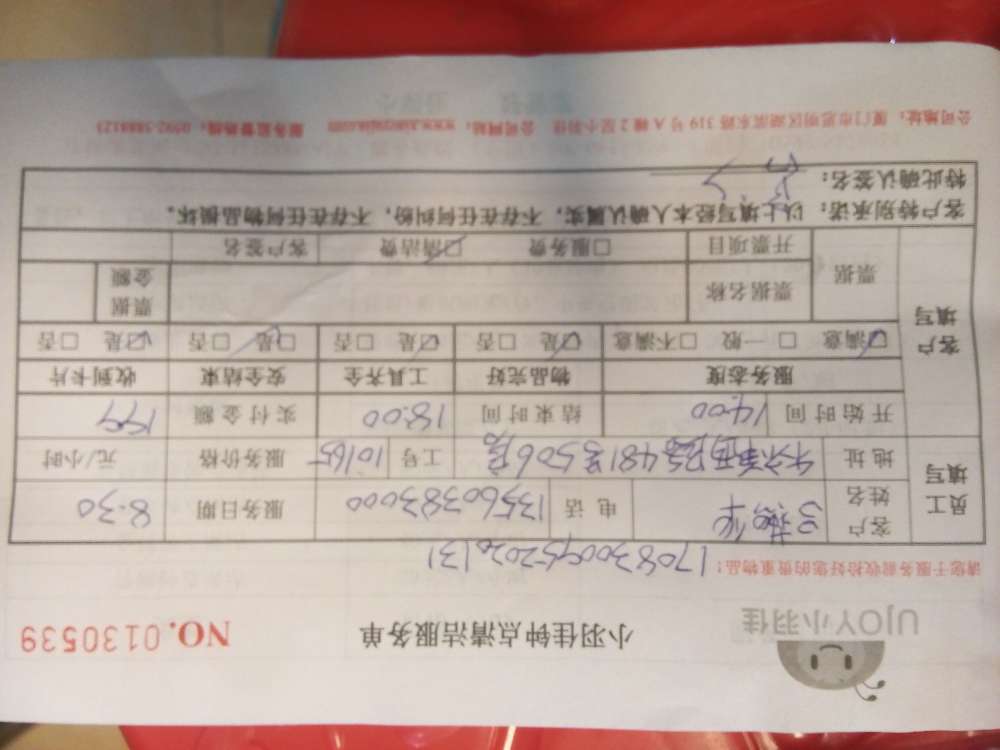 UJOY小羽佳
小羽佳钟点清洁服务单
NO.0130539
请您于服务前收拾好您的贵重物品！
1708300095202013 1
员工填写
客户姓名
电话 13560383000
服务日期 8.30
地址 481号506房
工号 10165
服务价格 元/小时
开始时间 14:00 结束时间 18:00 实付金额
客户填写
服务态度 物品完好 工具齐全 安全结束 收到卡片
☑满意 □一般 □不满意 ☑是 □否 ☑是 □否 ☑是 □否 ☑是 □否
票据 票据名称 票据金额
开票项目 □服务费 ☑清洁费 客户签名
客户特别承诺：以上填写经本人确认属实，不存在任何纠纷，不存在任何物品损坏。
特此确认签名：
公司地址：厦门市思明区湖滨东路319号A幢2层小羽佳 公司网站：www.xiaoyujia.com 服务监督热线：0592-5888123